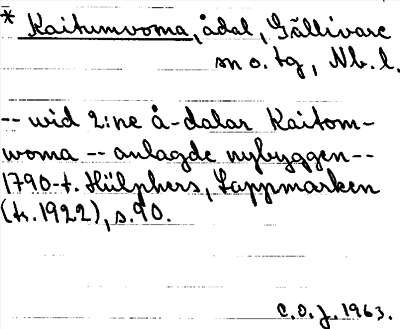 * Kaitumvoma, ådal, Gällivare
sn o. tg, Nb. l.
-- wid 2:ne å-dalar Kaitom-
woma -- anlagde nybyggen --
1790-t. Hülphers, Lappmarken
(tr. 1922), s. 90.
C.O.J. 1963.